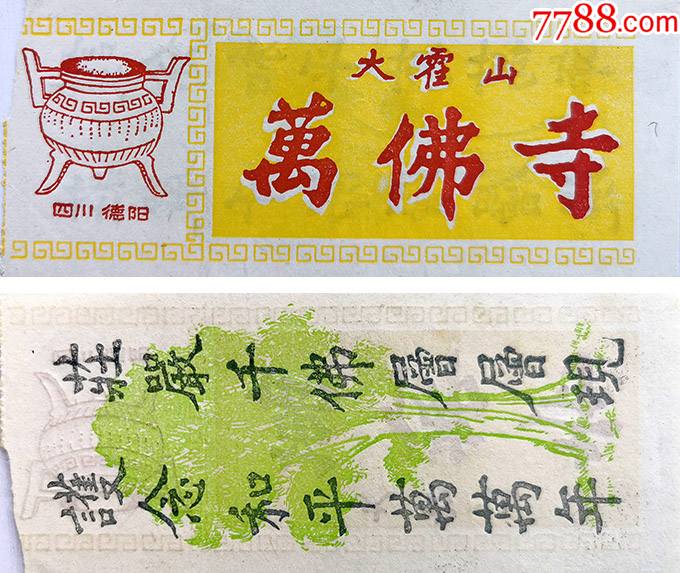 7788.com
大霍山
萬佛寺
四川 德阳
莊嚴千佛層層現
護念和平萬萬年